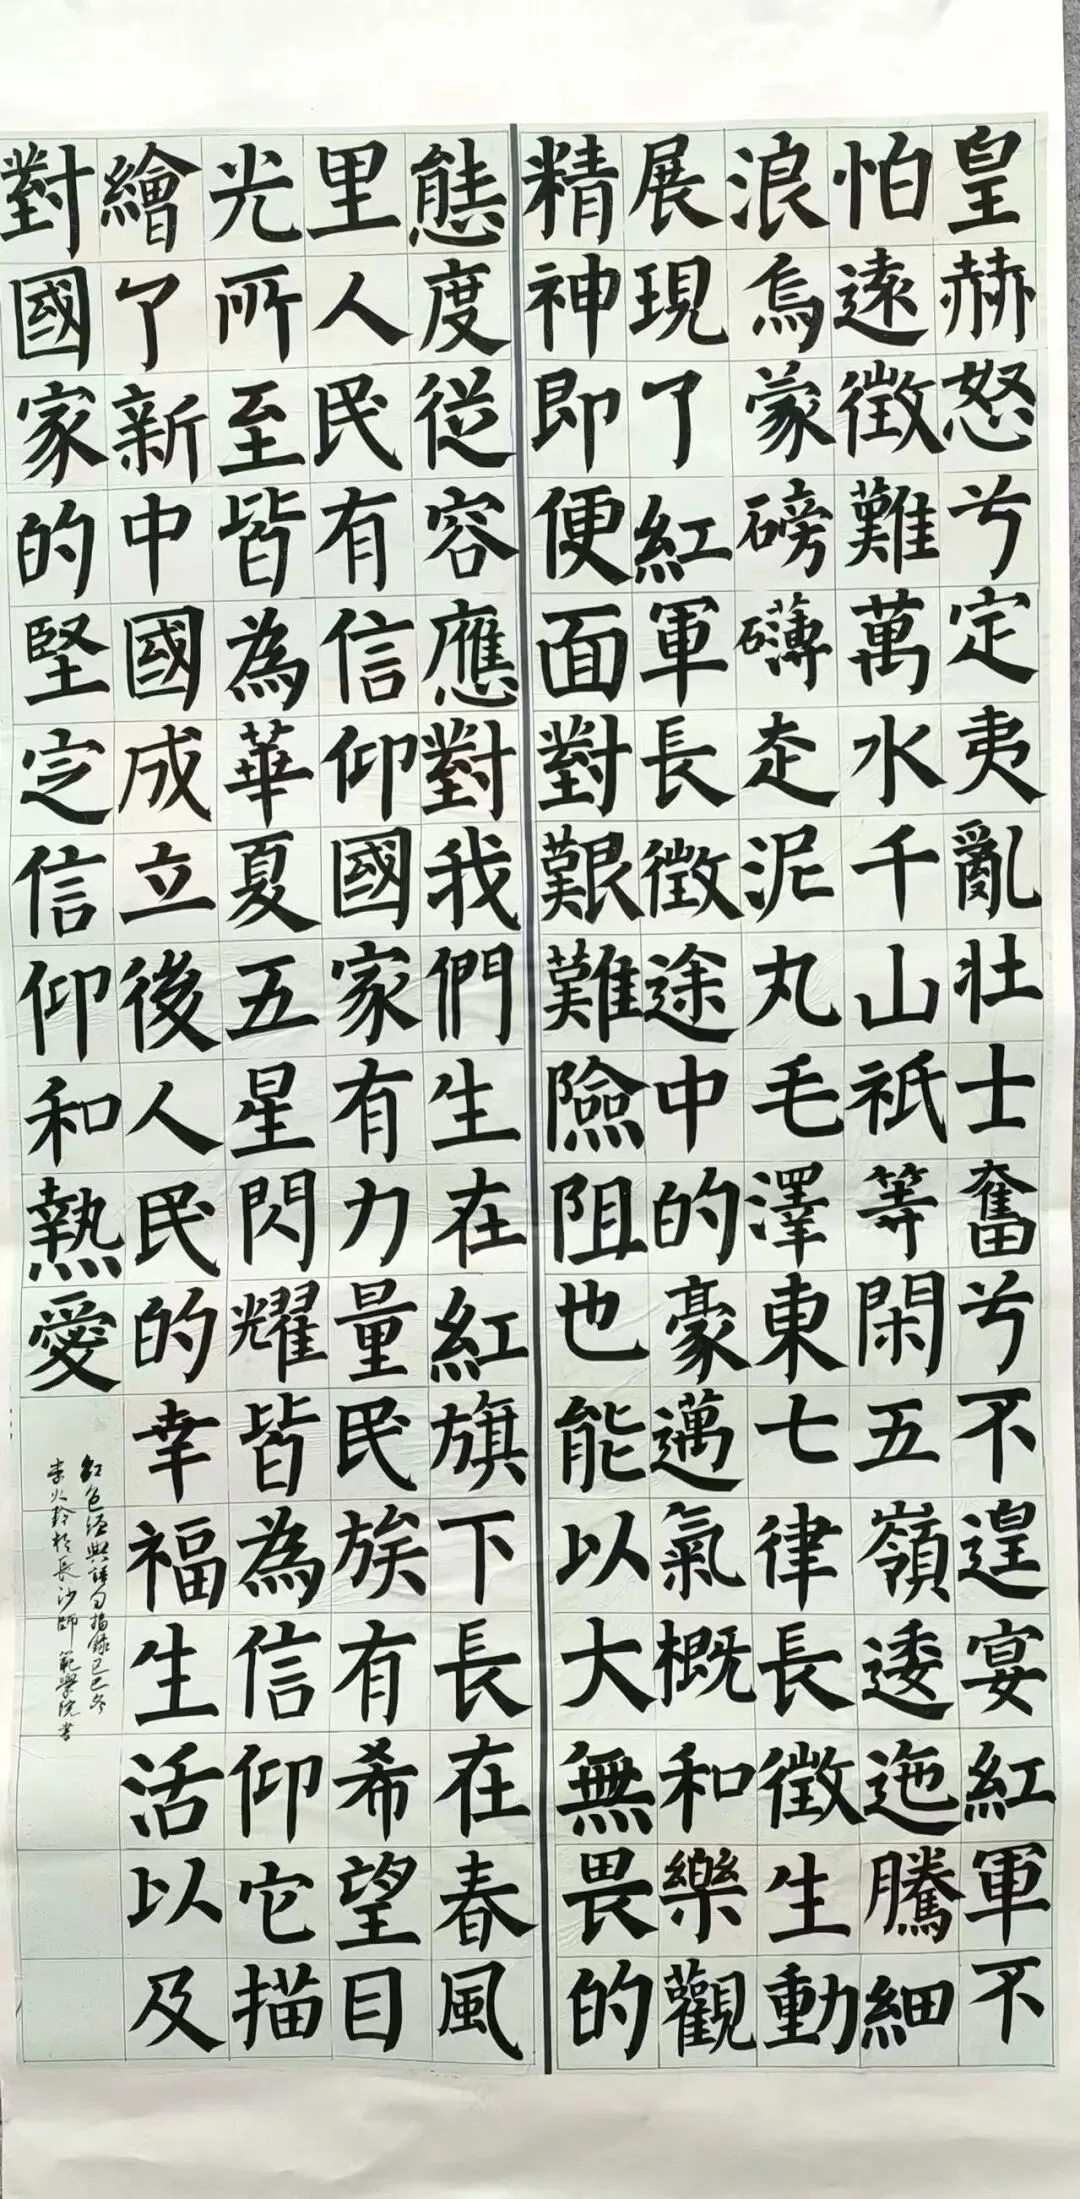 皇赫怒兮定夷亂壯士奮兮不遑宴紅軍不
怕遠徵難萬水千山祇等閑五嶺逶迤騰細
浪烏蒙磅礴走泥丸毛澤東七律長徵生動
展現了紅軍長徵途中的豪邁氣概和樂觀
精神即便面對艱難險阻也能以大無畏的
態度從容應對我們生在紅旗下長在春風
里人民有信仰國家有力量民族有希望目
光所至皆為華夏五星閃耀皆為信仰它描
繪了新中國成立後人民的幸福生活以及
對國家的堅定信仰和熱愛
紅色經典語句摘錄乙巳冬
李火於長沙師範學院書